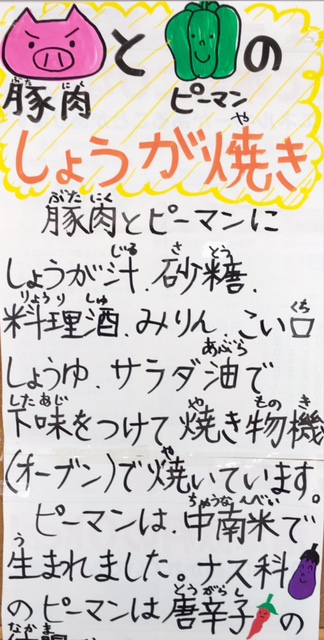 と の
豚肉 ピーマン
ぶた にく
しょうが焼き
や
豚肉とピーマンに
ぶた にく
しょうが汁、砂糖、
じる さ とう
料理酒、みりん、こい口
りょうり しゅ くち
しょうゆ、サラダ油で
あぶら
下味をつけて焼き物機
したあじ や もの き
(オーブン)で焼いています。
や
ピーマンは、中南米で
ちゅうなんべい
生まれました。ナス科
う
のピーマンは唐辛子の
とうがらし
なかま